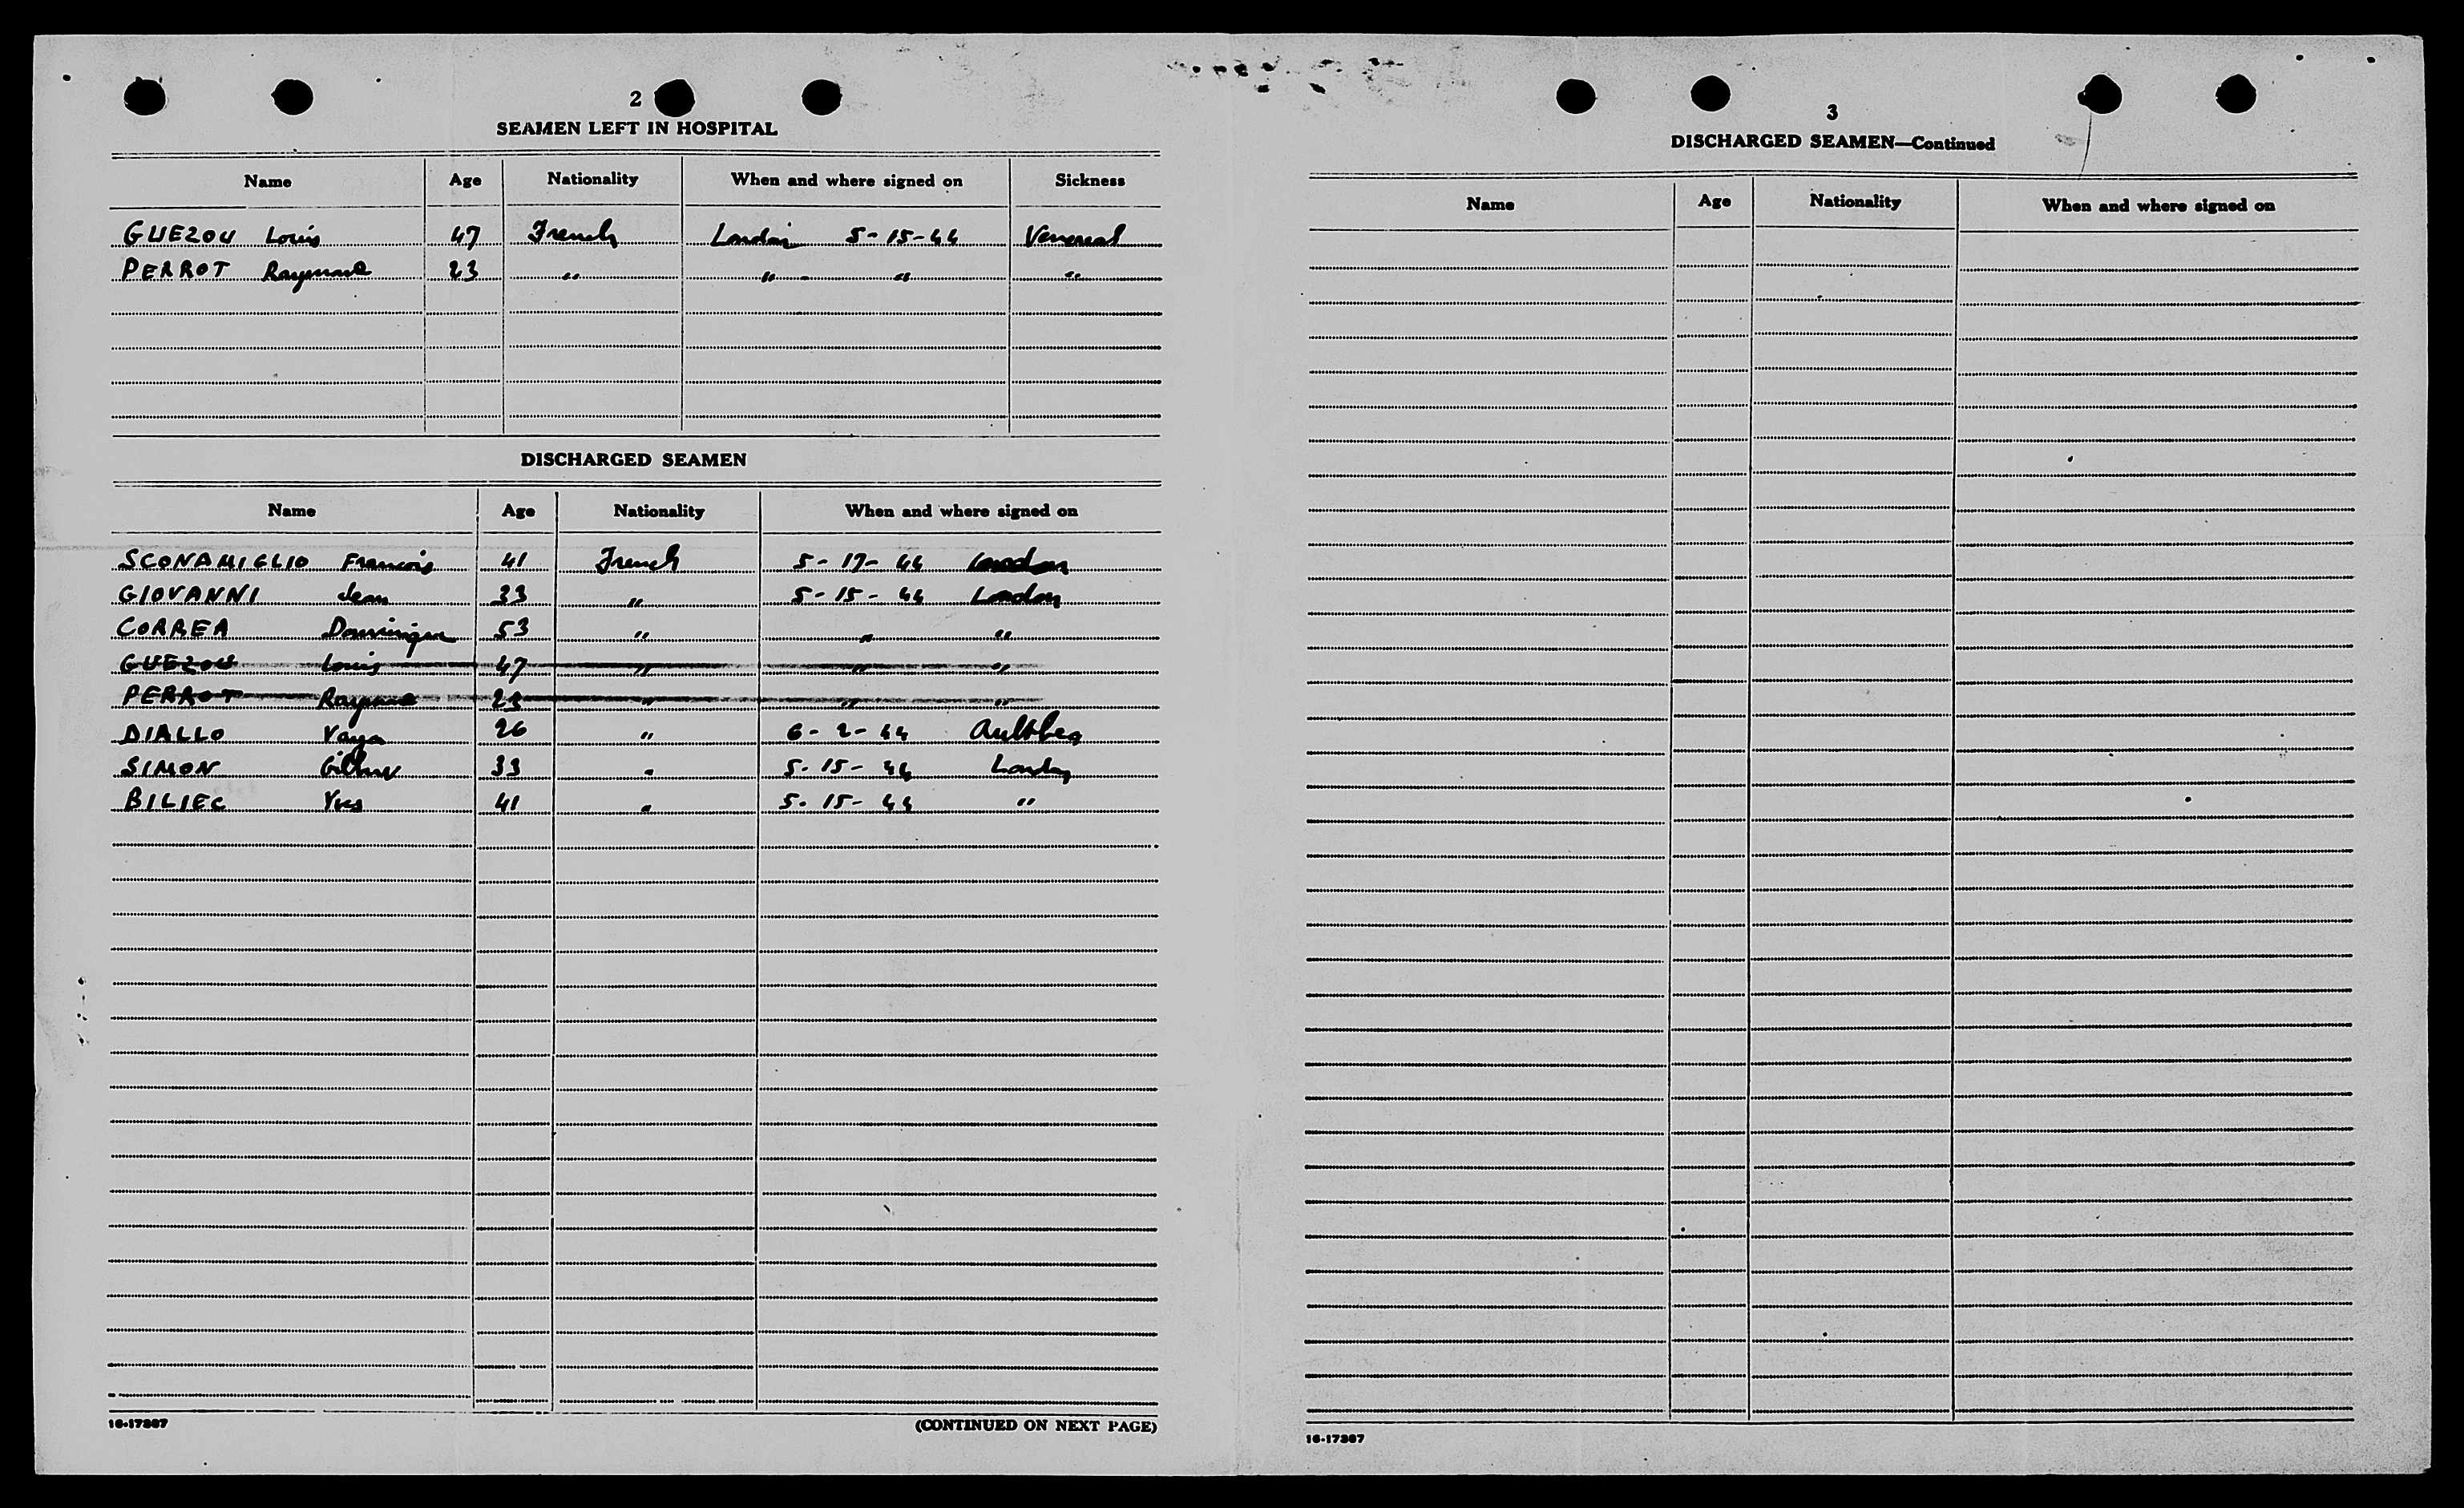 2
SEAMEN LEFT IN HOSPITAL
Name Age Nationality When and where signed on Sickness
GUEZOU Louis 47 French London 5-15-44 Venereal
PERROT Raymond 23 " " - " "
DISCHARGED SEAMEN
Name Age Nationality When and where signed on
SCONAMIGLIO Francois 41 French 5-17-44 London
GIOVANNI Jean 33 " 5-15-44 London
CORREA Dominique 53 " " "
GUEZOU Louis 47 " " "
PERROT Raymond 23 " " "
DIALLO Yaya 26 " 6-2-44 Aultbea
SIMON 33 " 5-15-44 London
BILIEC Yves 41 " 5-15-44 "
16-17387 (CONTINUED ON NEXT PAGE)
3
DISCHARGED SEAMEN—Continued
Name Age Nationality When and where signed on
16-17387